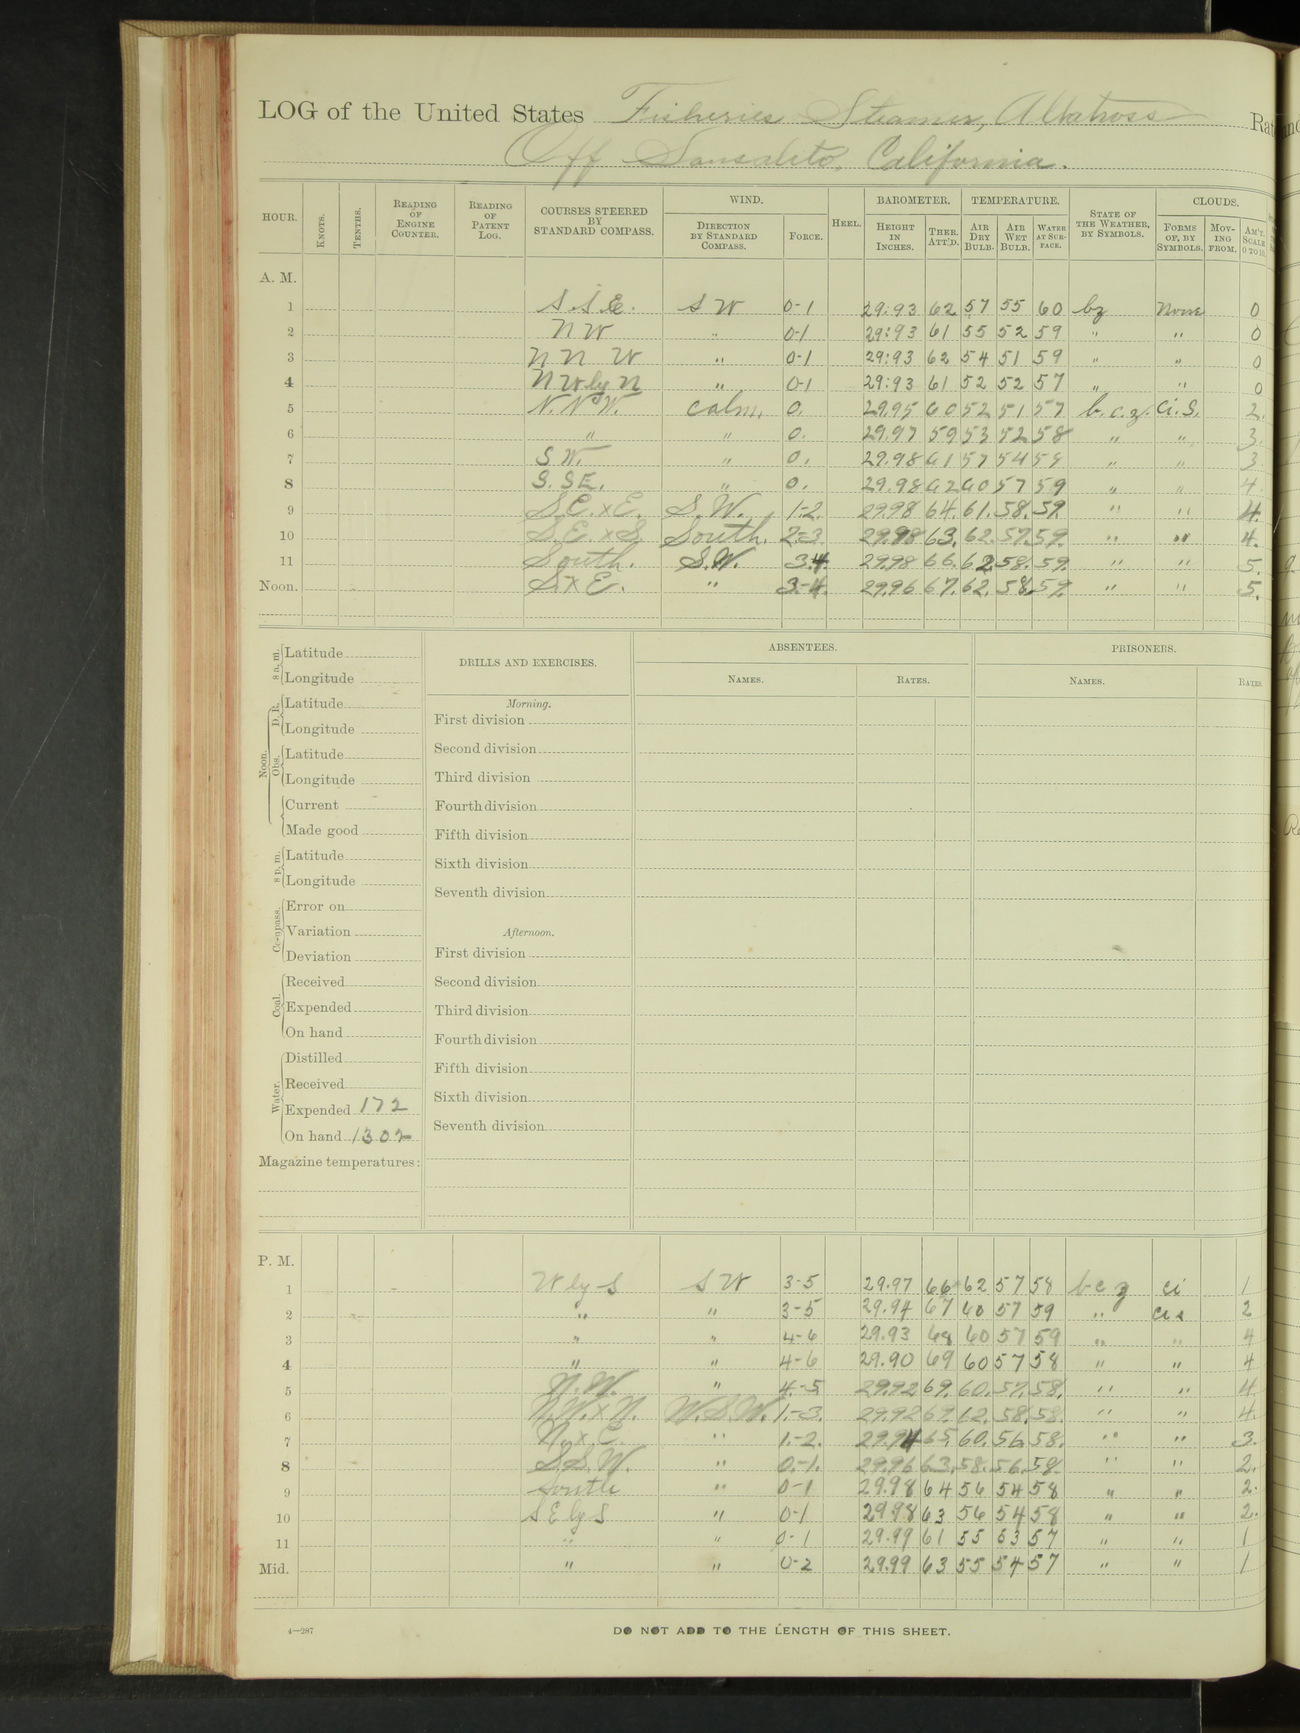 LOG of the United States Fisheries Steamer, Albatross
Off Sausalito, California.
HOUR. KNOTS. TENTHS. READING OF ENGINE COUNTER. READING OF PATENT LOG. COURSES STEERED BY STANDARD COMPASS. WIND. DIRECTION BY STANDARD COMPASS. FORCE. HEEL. BAROMETER. HEIGHT IN INCHES. THER. ATT'D. TEMPERATURE. AIR DRY BULB. AIR WET BULB. WATER AT SURFACE. STATE OF THE WEATHER, BY SYMBOLS. CLOUDS. FORMS OF, BY SYMBOLS. MOVING FROM. AM'T. SCALE 0 TO 10.
A. M.
1 S.S.E. S W 0-1 29.93 62 57 55 60 bz None 0
2 N W " 0-1 29.93 61 55 52 59 " " 0
3 N N W " 0-1 29.93 62 54 51 59 " " 0
4 N W ly N " 0-1 29.93 61 52 52 57 " " 0
5 N.N.W. calm. 0. 29.95 60 52 51 57 b.c.z. Ci.S. 2.
6 " " 0. 29.97 59 53 52 58 " " 3.
7 S.W. " 0. 29.98 61 57 54 58 " " 3
8 S.SE. " 0. 29.98 62 60 57 59 " " 4.
9 S.E.xE. S.W. 1-2. 29.98 64. 61. 58. 59. " " 4.
10 S.E.xS. South. 2-3. 29.98 63. 62. 57. 59. " " 4.
11 South. S.W. 3.4. 29.98 66. 62. 58. 59. " " 5.
Noon. S.xE. " 3-4. 29.96 67. 62. 58. 59. " " 5.
8 a.m. Latitude
Longitude
Noon. D.R. Latitude
Longitude
Obs. Latitude
Longitude
Current
Made good
8 p.m. Latitude
Longitude
Compass. Error on
Variation
Deviation
Coal. Received
Expended
On hand
Water. Distilled
Received
Expended 172
On hand 1302
Magazine temperatures:
DRILLS AND EXERCISES.
Morning.
First division
Second division
Third division
Fourth division
Fifth division
Sixth division
Seventh division
Afternoon.
First division
Second division
Third division
Fourth division
Fifth division
Sixth division
Seventh division
ABSENTEES.
NAMES. RATES.
PRISONERS.
NAMES. RATES.
P. M.
1 W ly S S W 3-5 29.97 66 62 57 58 b c z ci 1
2 " " 3-5 29.94 67 60 57 59 " ci s 2
3 " " 4-6 29.93 68 60 57 59 " " 4
4 " " 4-6 29.90 69 60 57 58 " " 4
5 N.W. " 4-5 29.92 69. 60. 57. 58. " " 4.
6 N.W.xN. W.S.W. 1-3. 29.92 67. 62. 58. 58. " " 4.
7 N.xE. " 1-2. 29.94 65. 60. 56. 58. " " 3.
8 S.S.W. " 0-1. 29.96 63. 58. 56. 58. " " 2.
9 South " 0-1 29.98 64 56 54 58 " " 2.
10 S E ly S " 0-1 29.98 63 56 54 58 " " 2.
11 " " 0-1 29.99 61 55 53 57 " " 1
Mid. " " 0-2 29.99 63 55 54 57 " " 1
4—287
DO NOT ADD TO THE LENGTH OF THIS SHEET.